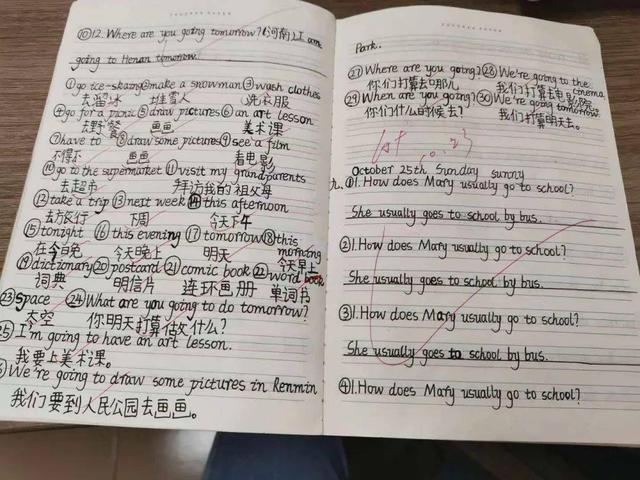 ⑩12. Where are you going tomorrow? (河南) I am
going to Henan tomorrow.
①go ice-skaing ②make a snowman ③wash clothes
去溜冰 堆雪人 洗衣服
④go for a picnic ⑤draw pictures ⑥an art lesson
去野餐 画画 美术课
⑦have to ⑧draw some pictures ⑨see a film
不得不 画画 看电影
⑩go to the supermarket ⑪visit my grandparents
去超市 拜访我的祖父母
⑫take a trip ⑬next week ⑭this afternoon
去旅行 下周 今天下午
⑮tonight ⑯this evening ⑰tomorrow ⑱this
morning
在今晚 今天晚上 明天 今天早上
⑲dictionary ⑳postcard ㉑comic book ㉒word book
词典 明信片 连环画册 单词书
㉓space ㉔What are you going to do tomorrow?
太空 你明天打算做什么?
㉕I'm going to have an art lesson.
我要上美术课。
We're going to draw some pictures in Renmin
我们要到人民公园去画画。
Park.
㉗Where are you going? ㉘We're going to the
cinema.
你们打算去哪儿 我们打算去电影院
㉙When are you going? ㉚We're going tomorrow.
你们什么时候去? 我们打算明天去。
10.23
October 25th Sunday sunny
九、①1. How does Mary usually go to school?
She usually goes to school by bus.
②1. How does Mary usually go to school?
She usually goes to school by bus.
③1. How does Mary usually go to school?
She usually goes to school by bus.
④1. How does Mary usually go to school?